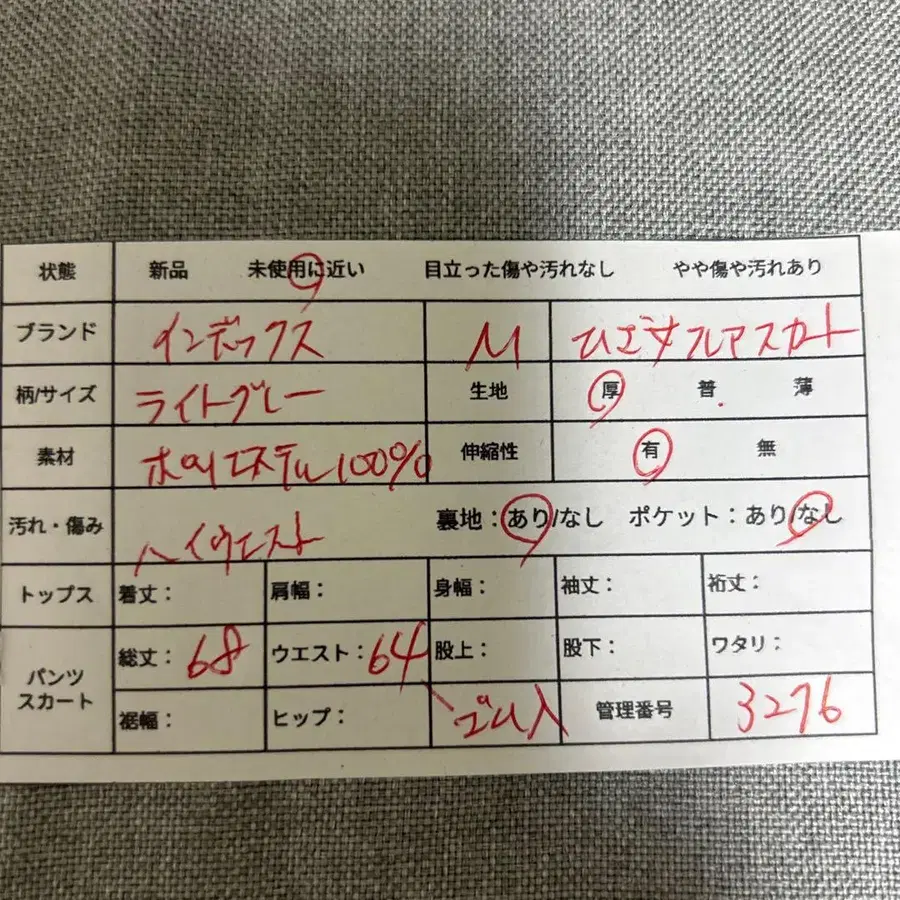 状態 新品 未使用に近い 目立った傷や汚れなし やや傷や汚れあり
ブランド インデックス M ひざ丈フレアスカート
柄/サイズ ライトグレー 生地 厚 普 薄
素材 ポリエステル100% 伸縮性 有 無
汚れ・傷み ハイウエスト 裏地：あり/なし ポケット：あり/なし
トップス 着丈： 肩幅： 身幅： 袖丈： 裄丈：
パンツ スカート 総丈：68 ウエスト：64 股上： 股下： ワタリ：
裾幅： ヒップ： ゴム入 管理番号 3276